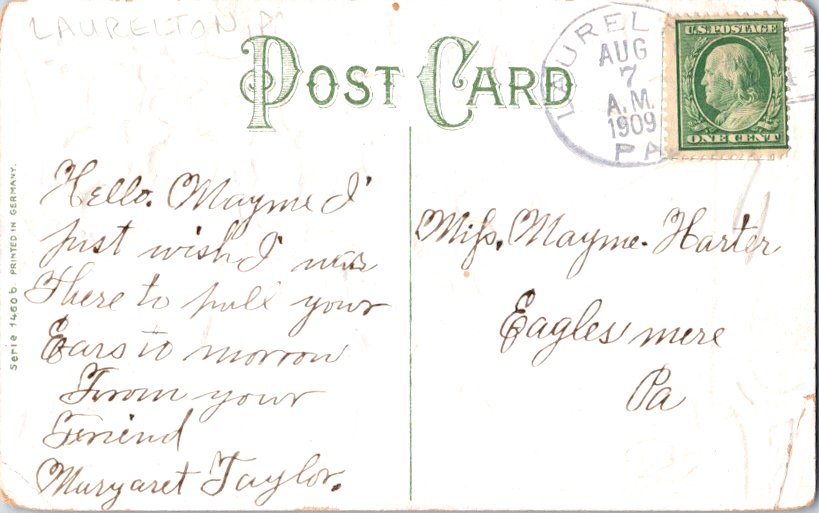 LAURELTON, P
POST CARD
LAUREL
AUG
7
A.M.
1909
PA
U.S. POSTAGE
ONE CENT
Serie 1460 b PRINTED IN GERMANY.
Hello. Mayme I
just wish I was
There to pull your
Ears to morrow
From your
Friend
Margaret Taylor.
Miss, Mayme. Harter
Eagles mere
Pa